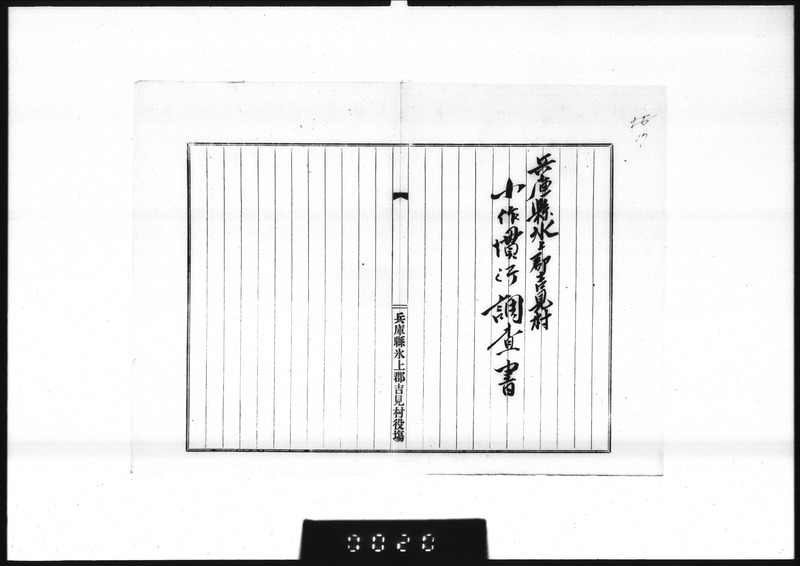 兵庫縣氷上郡吉見村
小作慣行調査書
兵庫縣氷上郡吉見村役塲
0020